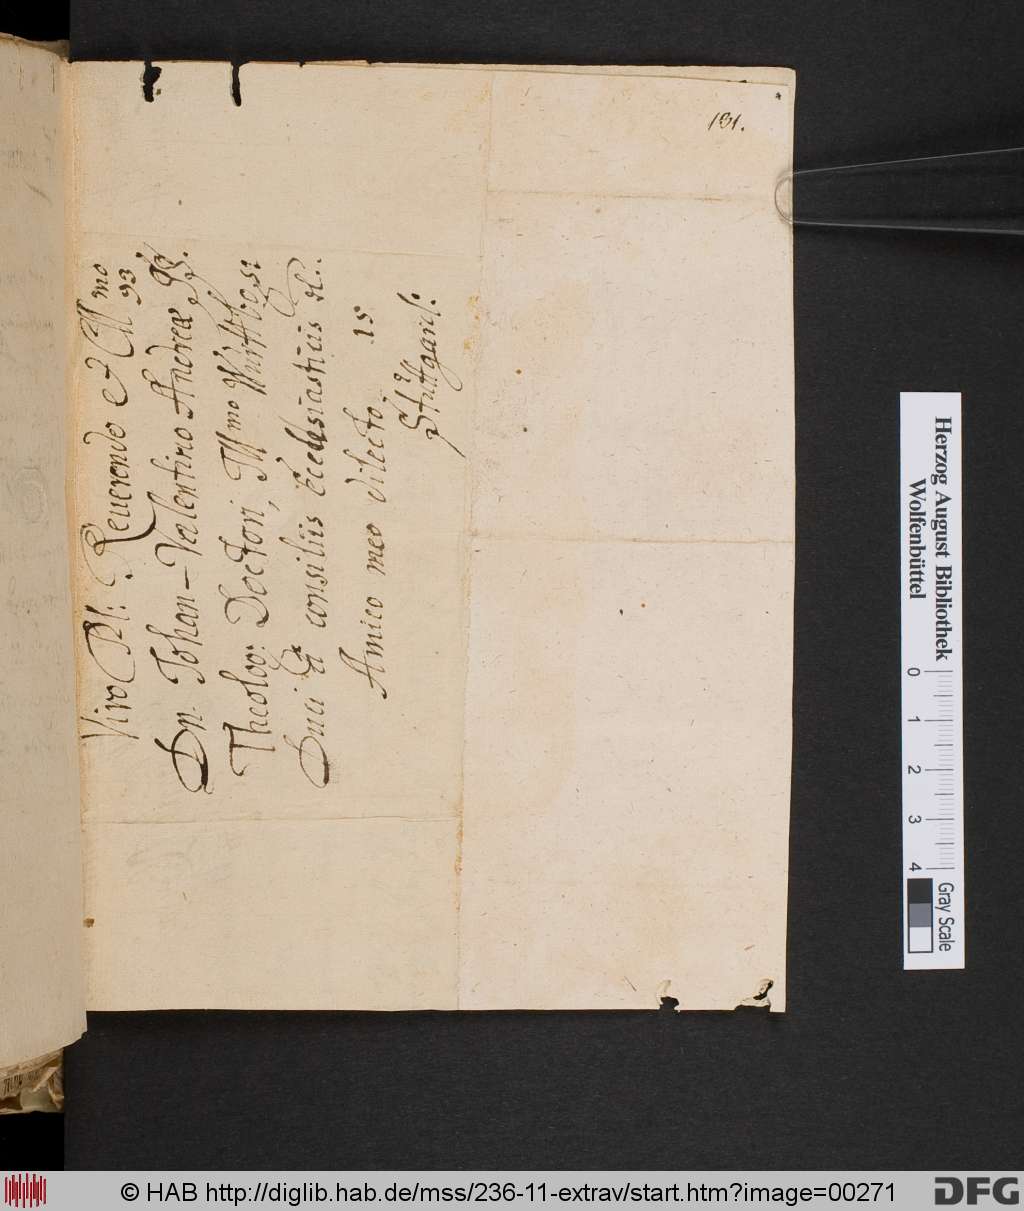 131.
Viro Pl: Reuerendo et Cll mo
Dn. Johan-Valentino Andreæ
Theolog: Doctori, Ill mo Württ
Duci à consiliis Ecclesiasticis &c.
Amico meo dilecto
Stuttgart:
Herzog August Bibliothek
Wolfenbüttel
0 1 2 3 4
Gray Scale
© HAB http://diglib.hab.de/mss/236-11-extrav/start.htm?image=00271
DFG